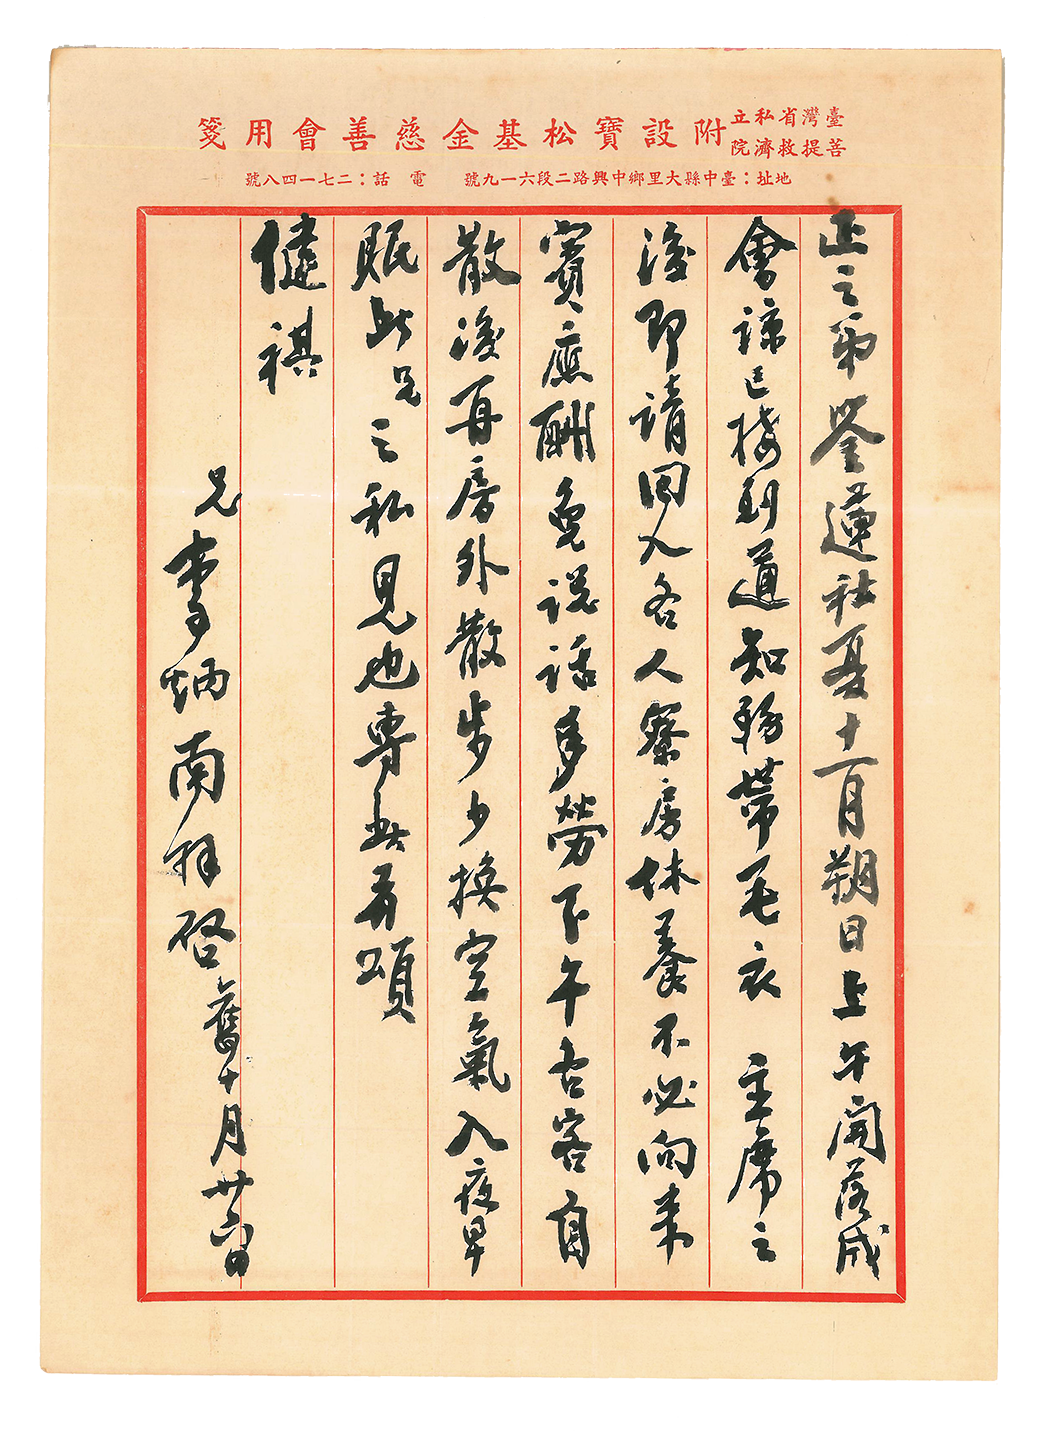 臺灣省私立
菩提救濟院
附設寶松基金慈善會用箋
地址：臺中縣大里鄉中興路二段六一九號 電話：二七一四八號
正之弟鑒蓮社夏十一月朔日上午開落成
會諒已接到通知務帶毛衣 主席之
後即請回入各人寮房休養不必向来
賓應酬免說話多勞下午客自
散後再房外散步少換空氣入夜早
眠此兄之私見也專此并頌
健祺
兄李炳南拜啓舊十月廿六日